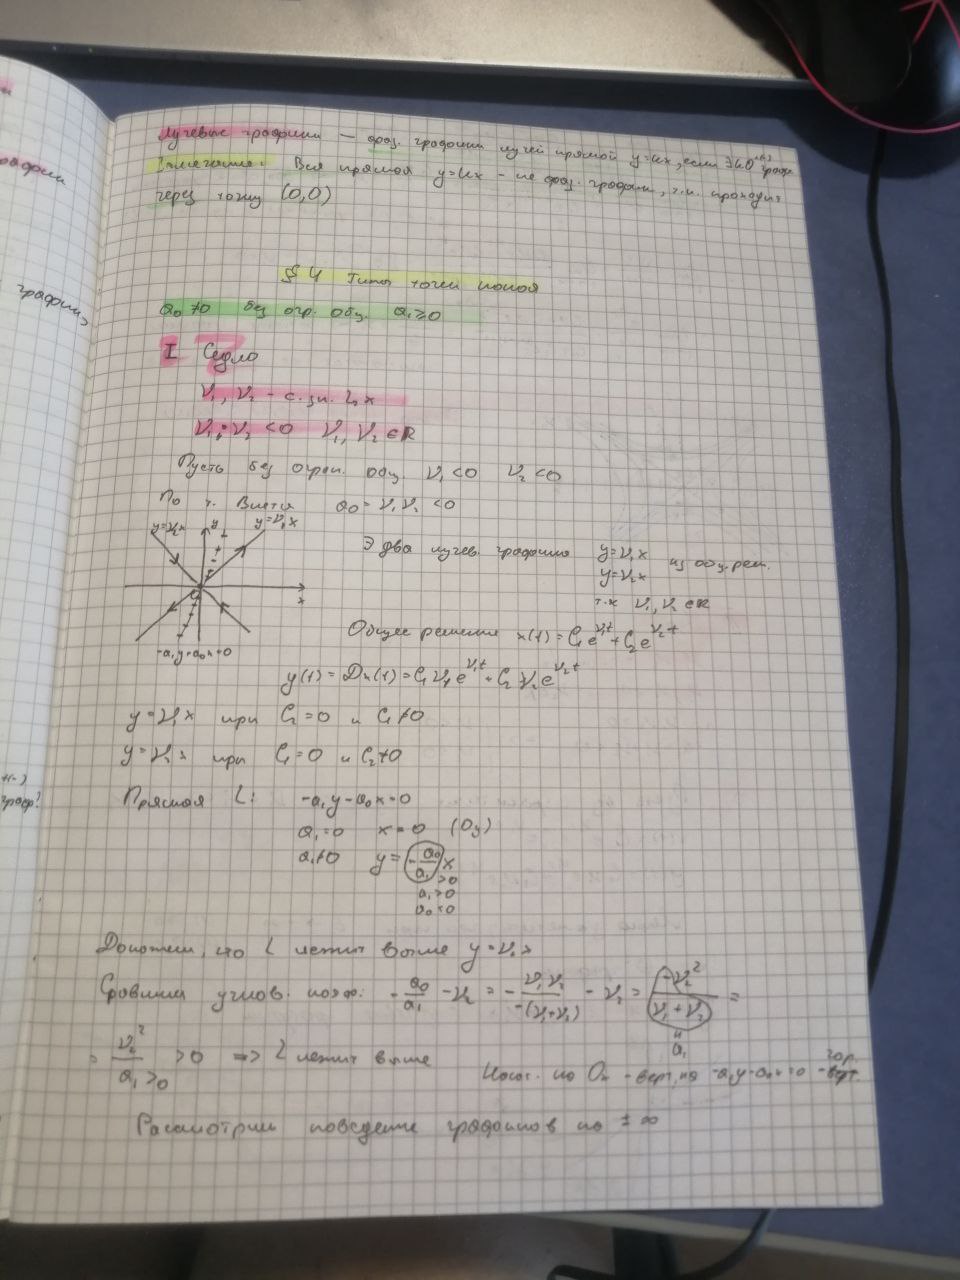 Лучевые графики — фаз. графики лучей прямой y=kx, если
Замечание: Вся прямая y=kx - не фаз. график, т.к. проходит
через точку (0,0)
§ 4 Типы точки покоя
a₀ ≠0 без огр. общ. a₁≥0
I Седло
ν₁, ν₂ - с.зн.
ν₁·ν₂ <0 ν₁, ν₂ ∈ℝ
Пусть без огран. общ. ν₁<0 ν₂<0
По т. Виета a₀= ν₁ν₂ <0
y=ν₂x y y=ν₁x
x
-a₁y-a₀x=0
∃ два лучев. графика y=ν₁x из общ. реш.
y=ν₂x
т.к ν₁, ν₂ ∈ℝ
Общее решение x(t)=C₁e^ν₁t+C₂e^ν₂t
y(t)=Dx(t)=C₁ν₁e^ν₁t+C₂ν₂e^ν₂t
y=ν₁x при C₂=0 и C₁≠0
при C₁=0 и C₂≠0
Прямая L: -a₁y-a₀x=0
a₁=0 x=0 (Oy)
a₁≠0 y=-a₀/a₁ x
>0
a₁>0
a₀<0
Докажем, что L лежит выше
Сравним углов. коэф: -a₀/a₁ -ν₂ = -ν₁ν₂/-(ν₁+ν₂) - ν₂ = -ν₂²/ν₁+ν₂ =
a₁
= ν₂²/a₁>0 >0 => L лежит выше
гор.
Касат. на Ox - верт, на -a₁y-a₀x=0 -
Рассмотрим поведение графиков на ±∞